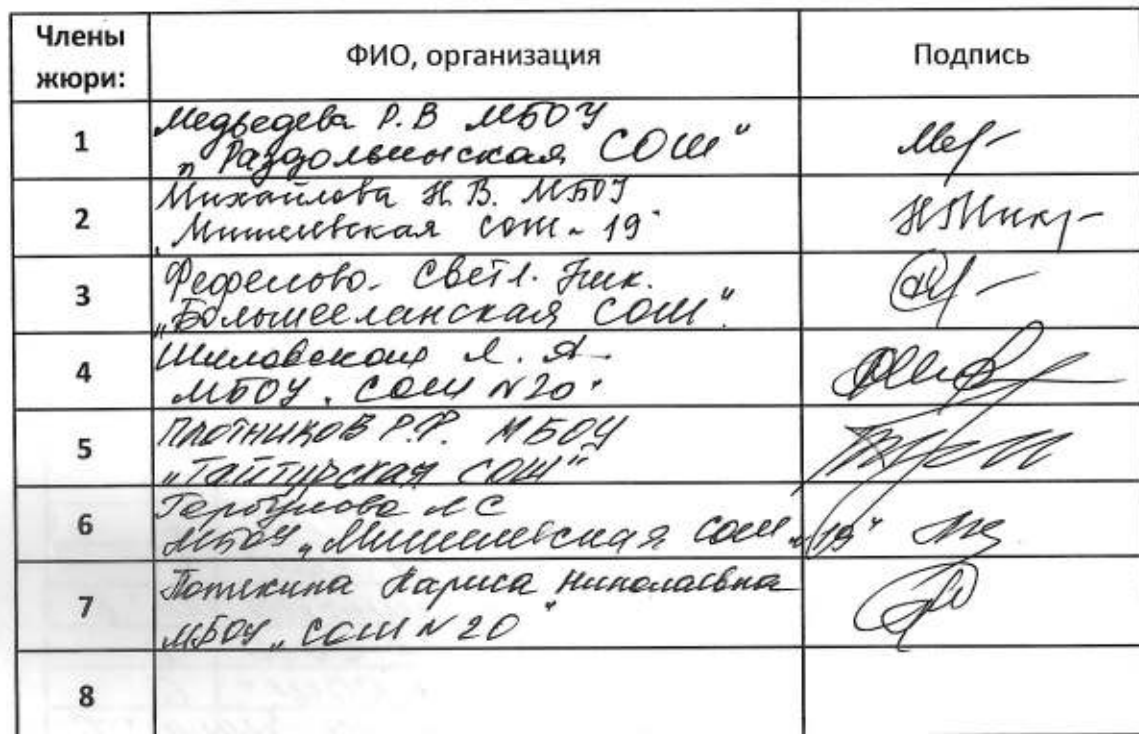 Члены жюри: ФИО, организация Подпись
1 Медведева Р.В МБОУ
„Раздольинская СОШ"
2 Михайлова Н.В. МБОУ
„Мишелевская СОШ - 19"
3 Фефелова Светл. Ник.
„Большееланская СОШ".
4 Шиловская Л. А.
МБОУ „СОШ N 20"
5 Плотников Р.Р. МБОУ
„Тайтурская СОШ"
6 Л С
МБОУ „Мишелевская СОШ 19"
7 Потекина Лариса Николаевна
МБОУ „СОШ N 20"
8